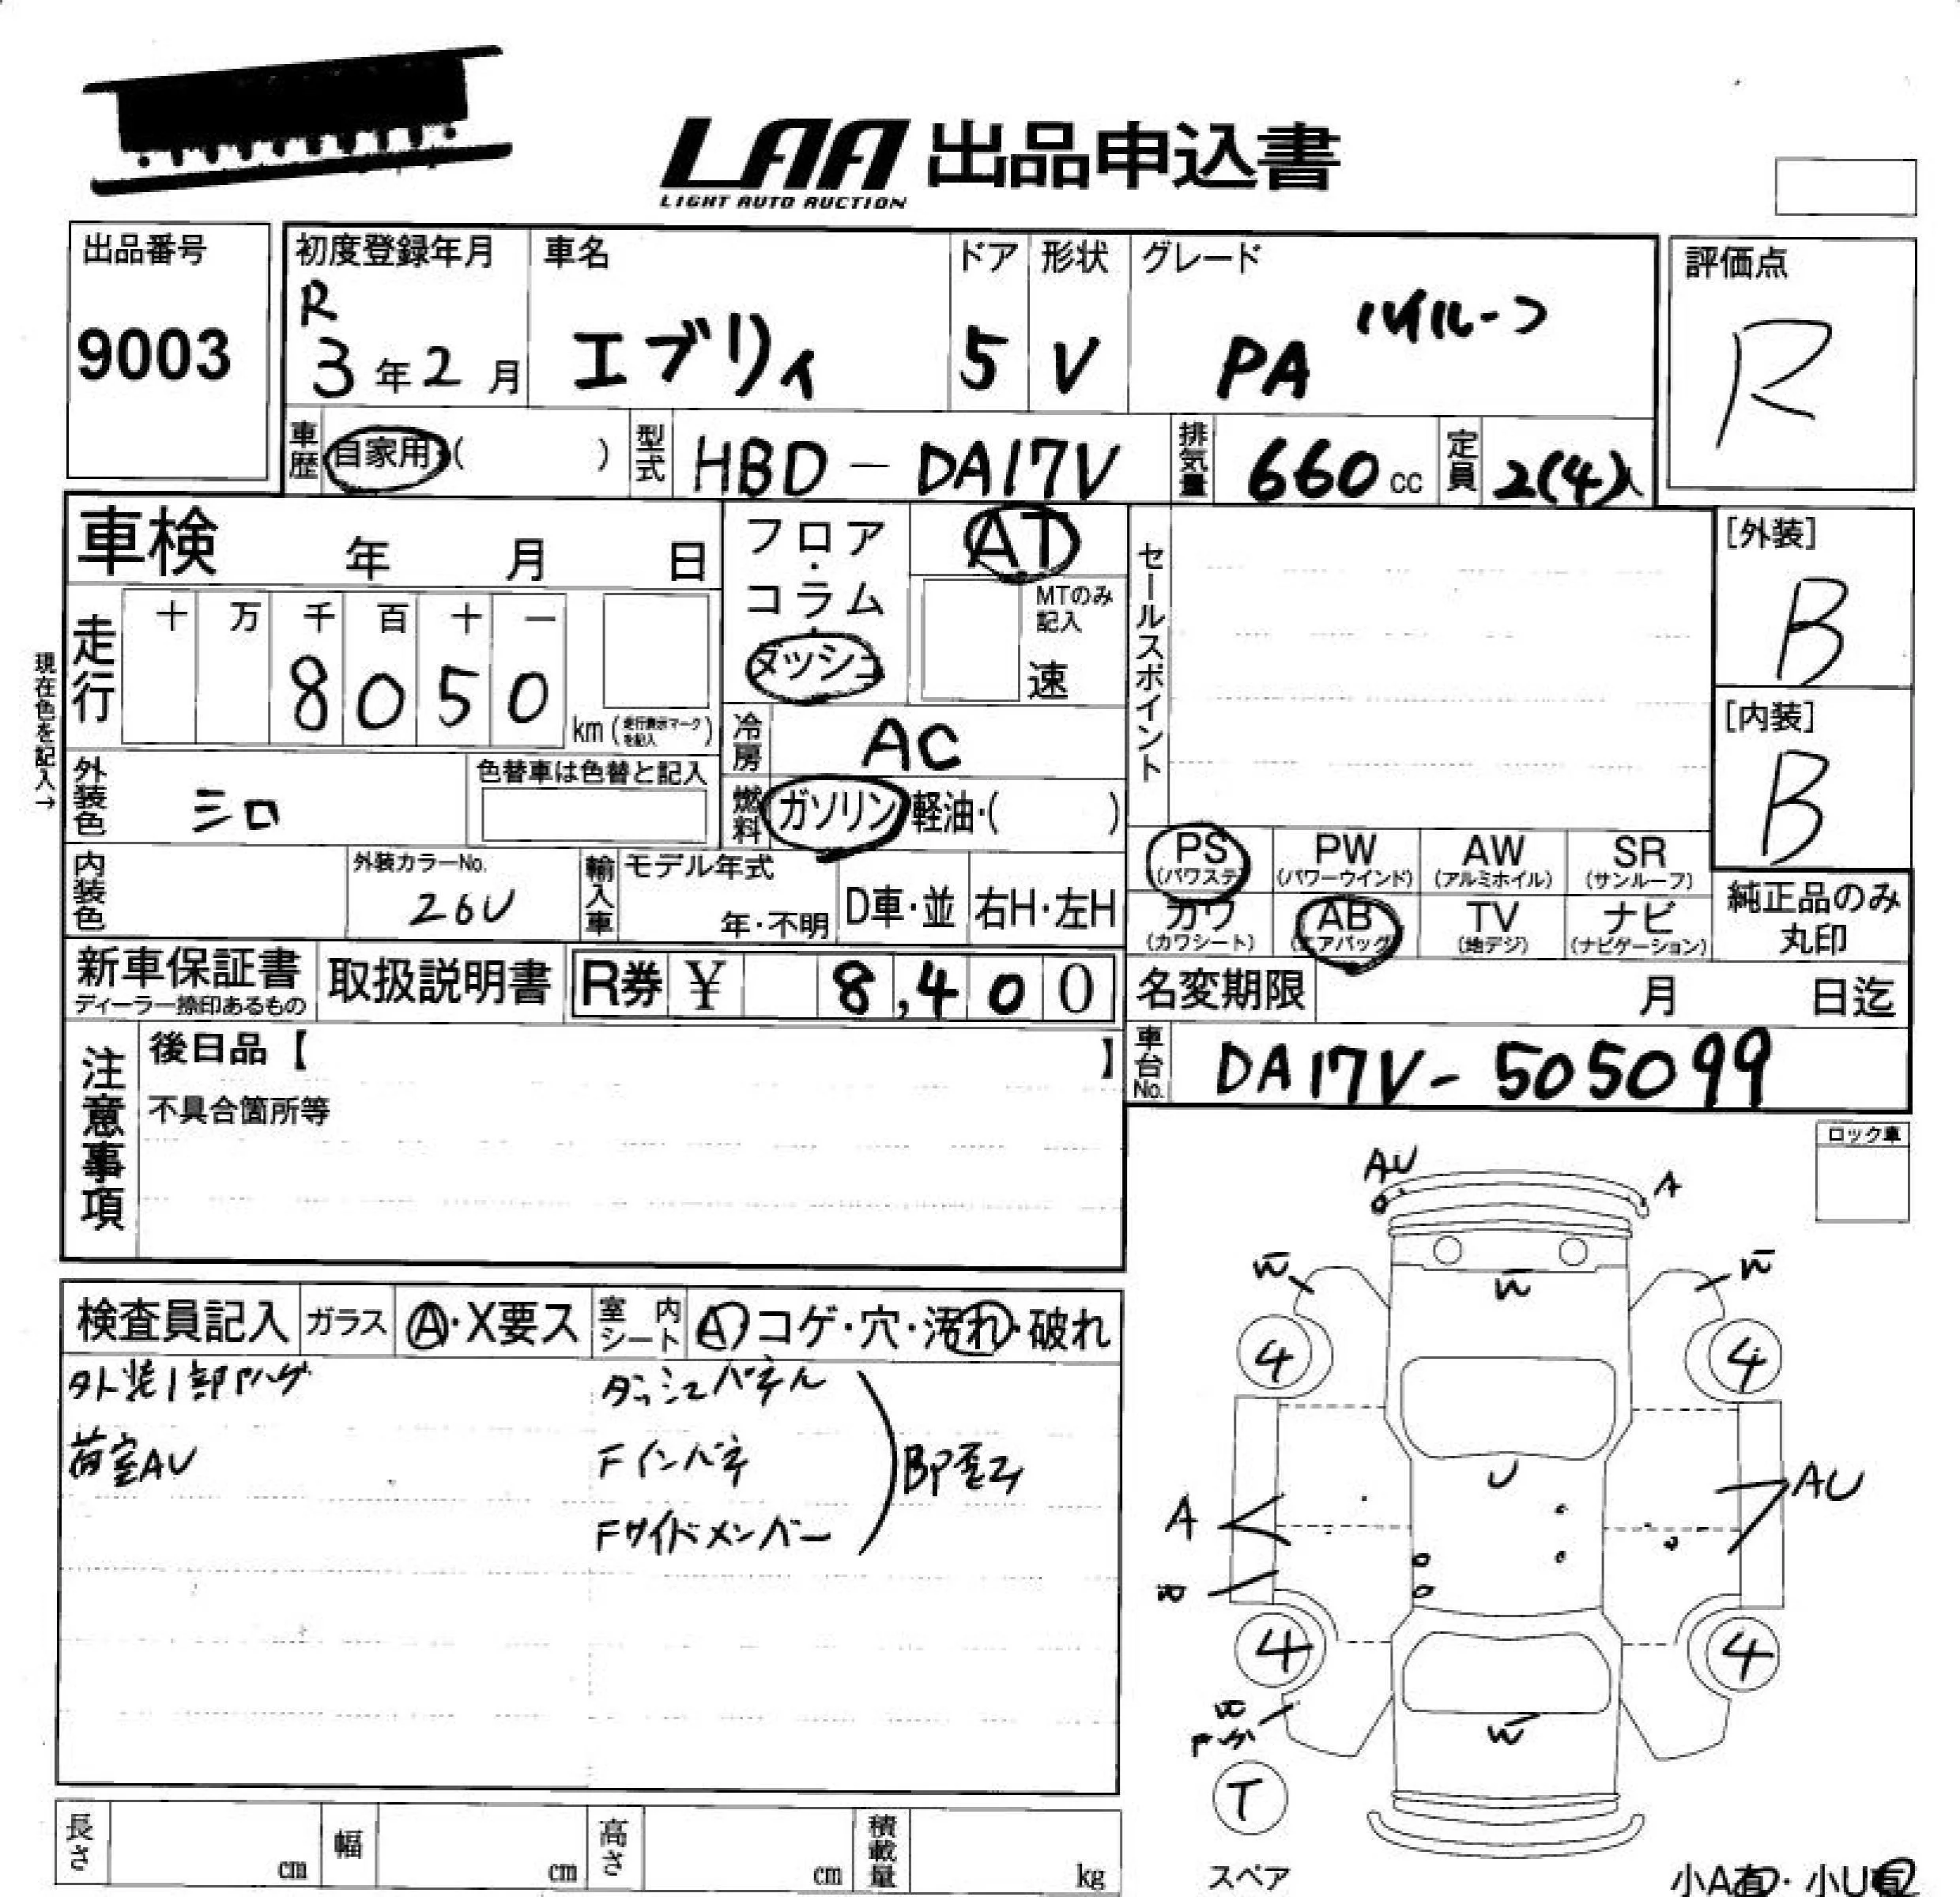 LAA 出品申込書
LIGHT AUTO AUCTION
出品番号
9003
初度登録年月
R
3年2月
車名
エブリィ
ドア
5
形状
V
グレード
PA ハイルーフ
評価点
R
車歴
自家用・( )
型式
HBD-DA17V
排気量
660cc
定員
2(4)人
車検 年 月 日
現在色を記入→
走行
十 万 千 百 十 一
8 0 5 0
km(走行表示マークを記入)
フロア・コラム・ダッシュ
AT
MTのみ記入
速
冷房
AC
燃料
ガソリン・軽油・( )
外装色
シロ
色替車は色替と記入
内装色
外装カラーNo.
26U
輸入車
モデル年式
年・不明
D車・並
右H・左H
セールスポイント
[外装]
B
[内装]
B
PS (パワステ)
PW (パワーウインド)
AW (アルミホイル)
SR (サンルーフ)
カワ (カワシート)
AB (エアバッグ)
TV (地デジ)
ナビ (ナビゲーション)
純正品のみ
丸印
新車保証書
ディーラー捺印あるもの
取扱説明書
R券 ¥ 8,400
名変期限 月 日迄
車台No.
DA17V-505099
注意事項
後日品【 】
不具合箇所等
ロック車
検査員記入
ガラス
A・X要ス
室内シート
A・コゲ・穴・汚れ・破れ
外装1部Pハゲ
荷室AU
ダッシュパネル
Fインパネ
Fサイドメンバー
BP歪み
AU
A
W
W
W
4
4
U
A
AU
W
4
4
W
Pハゲ
W
T
スペア
長さ cm
幅 cm
高さ cm
積載量 kg
小A有・小U有